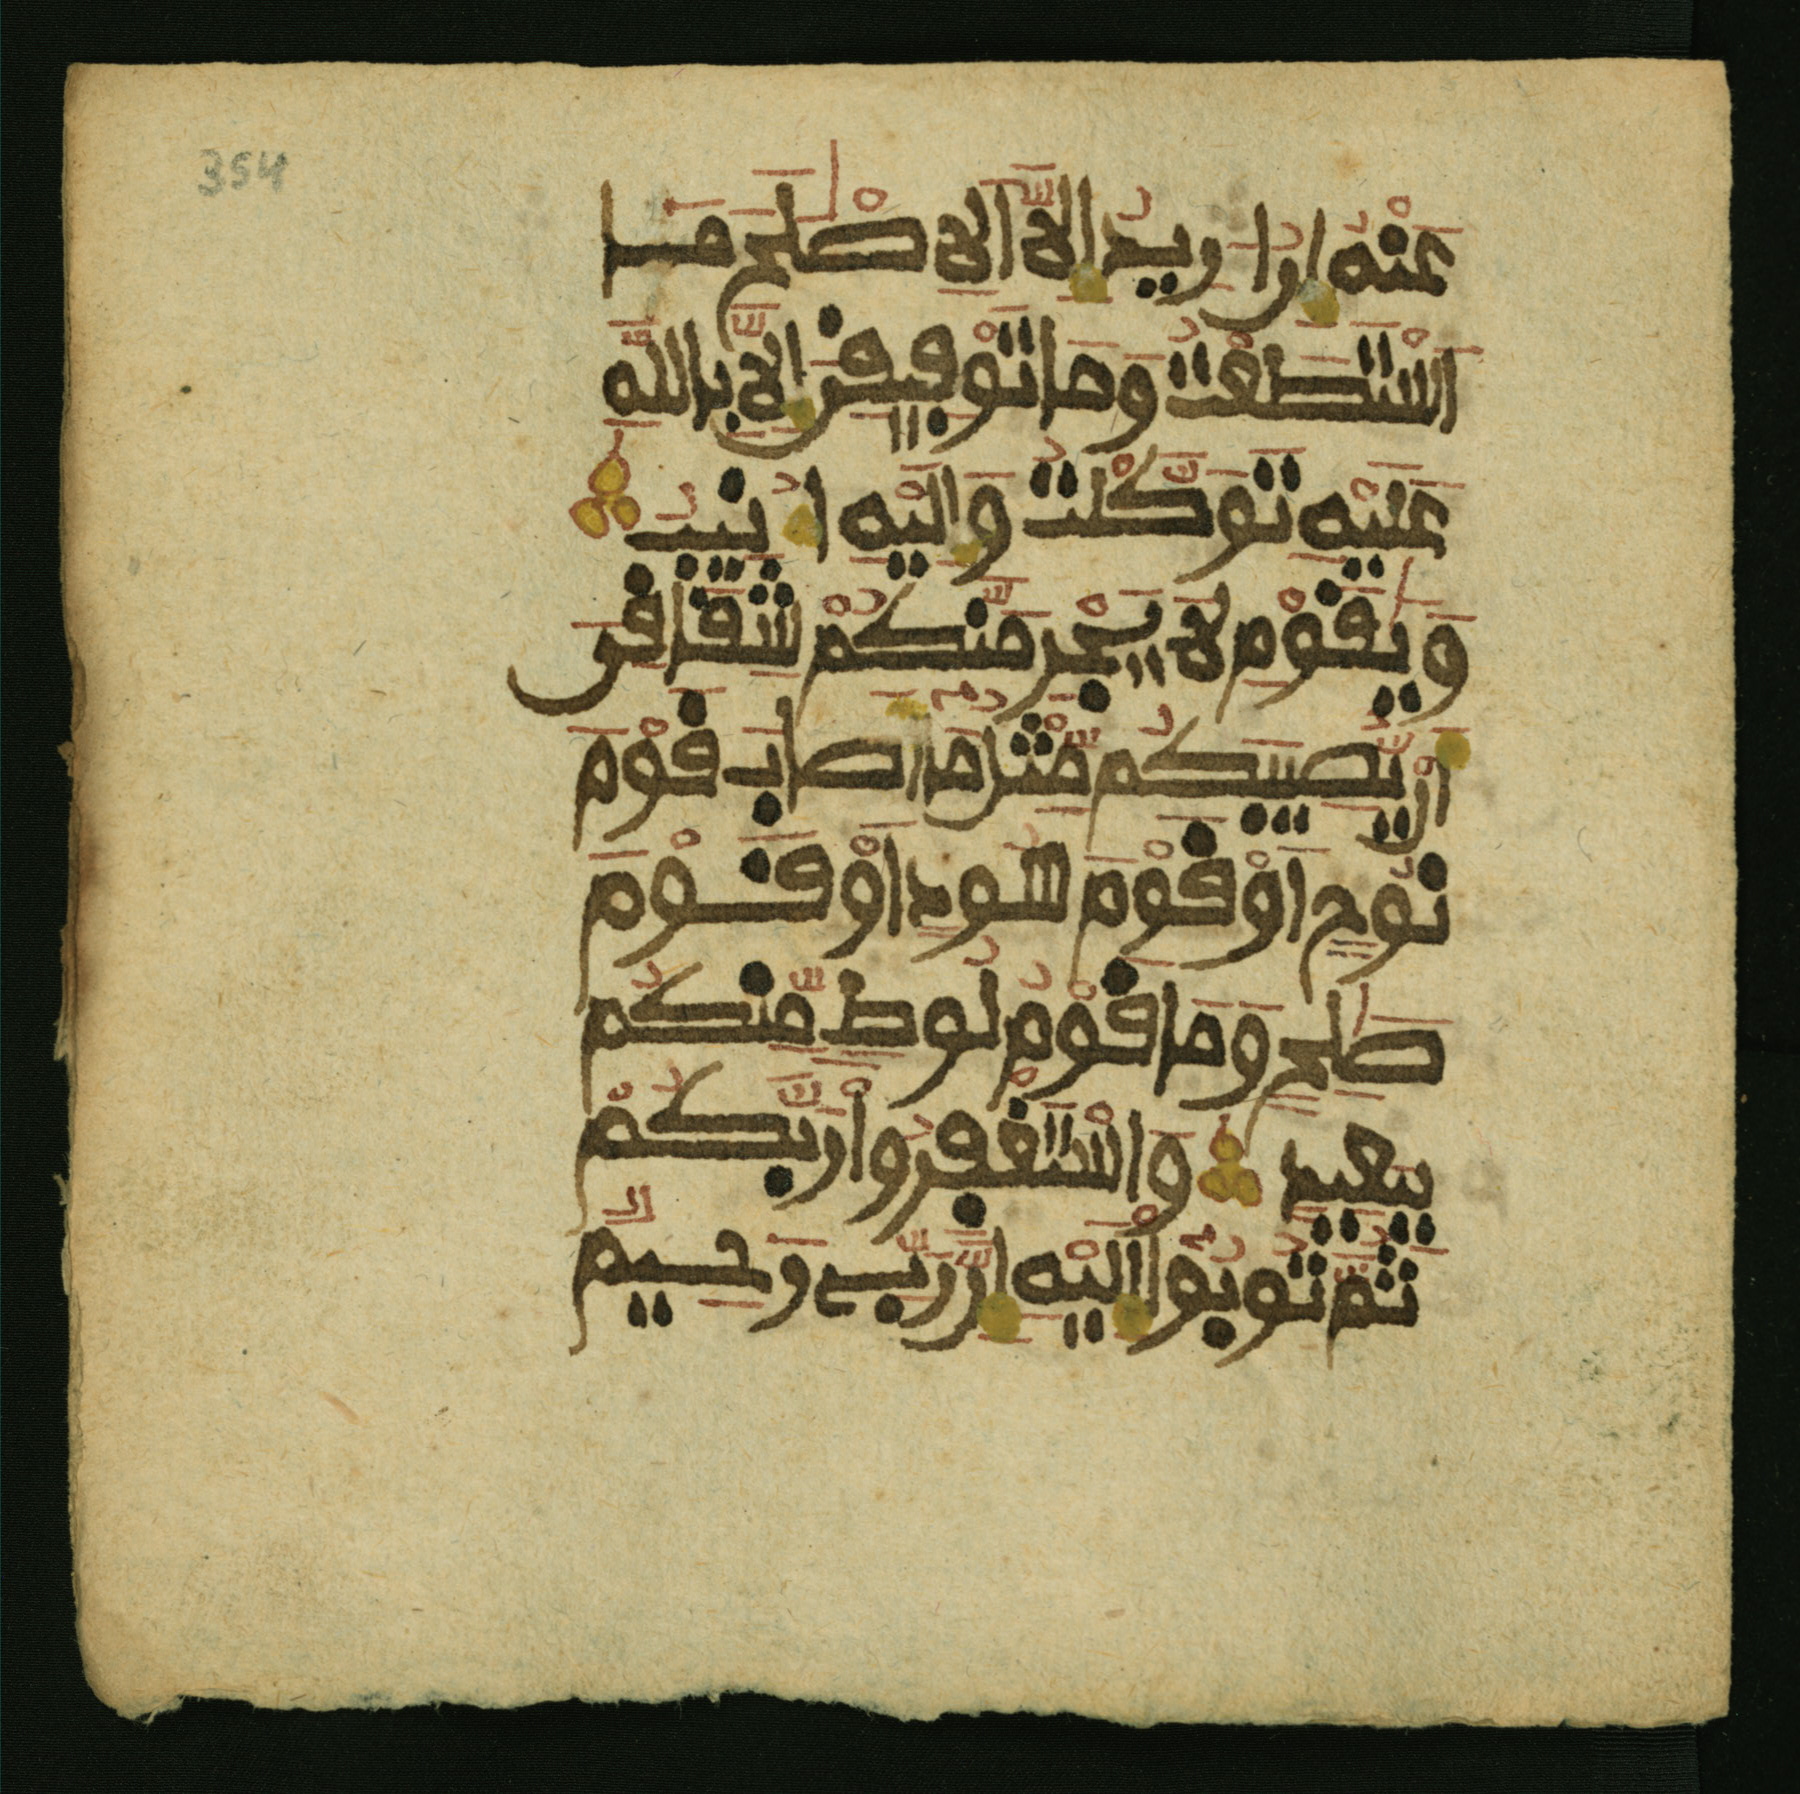 354
عَنْهُ إِنُ ارِيدُ إِلَّا الِاصْلَٰحَ مَا
اسْتَطَعْتُ وَمَا تَوْفِيقِي إِلَّا بِاللَّهِ
عَلَيْهِ تَوَكَّلْتُ وَإِلَيْهِ أُنِيبُ
وَيَٰقَوْمِ لَا يَجْرِمَنَّكُمْ شِقَاقِيَ
أَنْ يُّصِيبَكُم مِّثْلُ مَا أَصَابَ قَوْمَ
نُوحٍ أَوْ قَوْمَ هُودٍ أَوْ قَوْمَ
صَٰلِحٍ وَمَا قَوْمُ لُوطٍ مِّنكُم
بِبَعِيدٍ وَاسْتَغْفِرُوا رَبَّكُمْ
ثُمَّ تُوبُوا إِلَيْهِ إِنَّ رَبِّي رَحِيمٌ